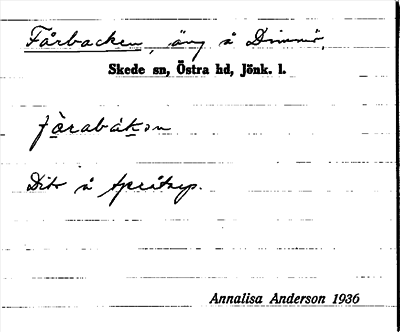 Fårbacken, äng å Dimmö.
Skede sn, Östra hd, Jönk. l.
fårabákən
Dito å
Annalisa Anderson 1936